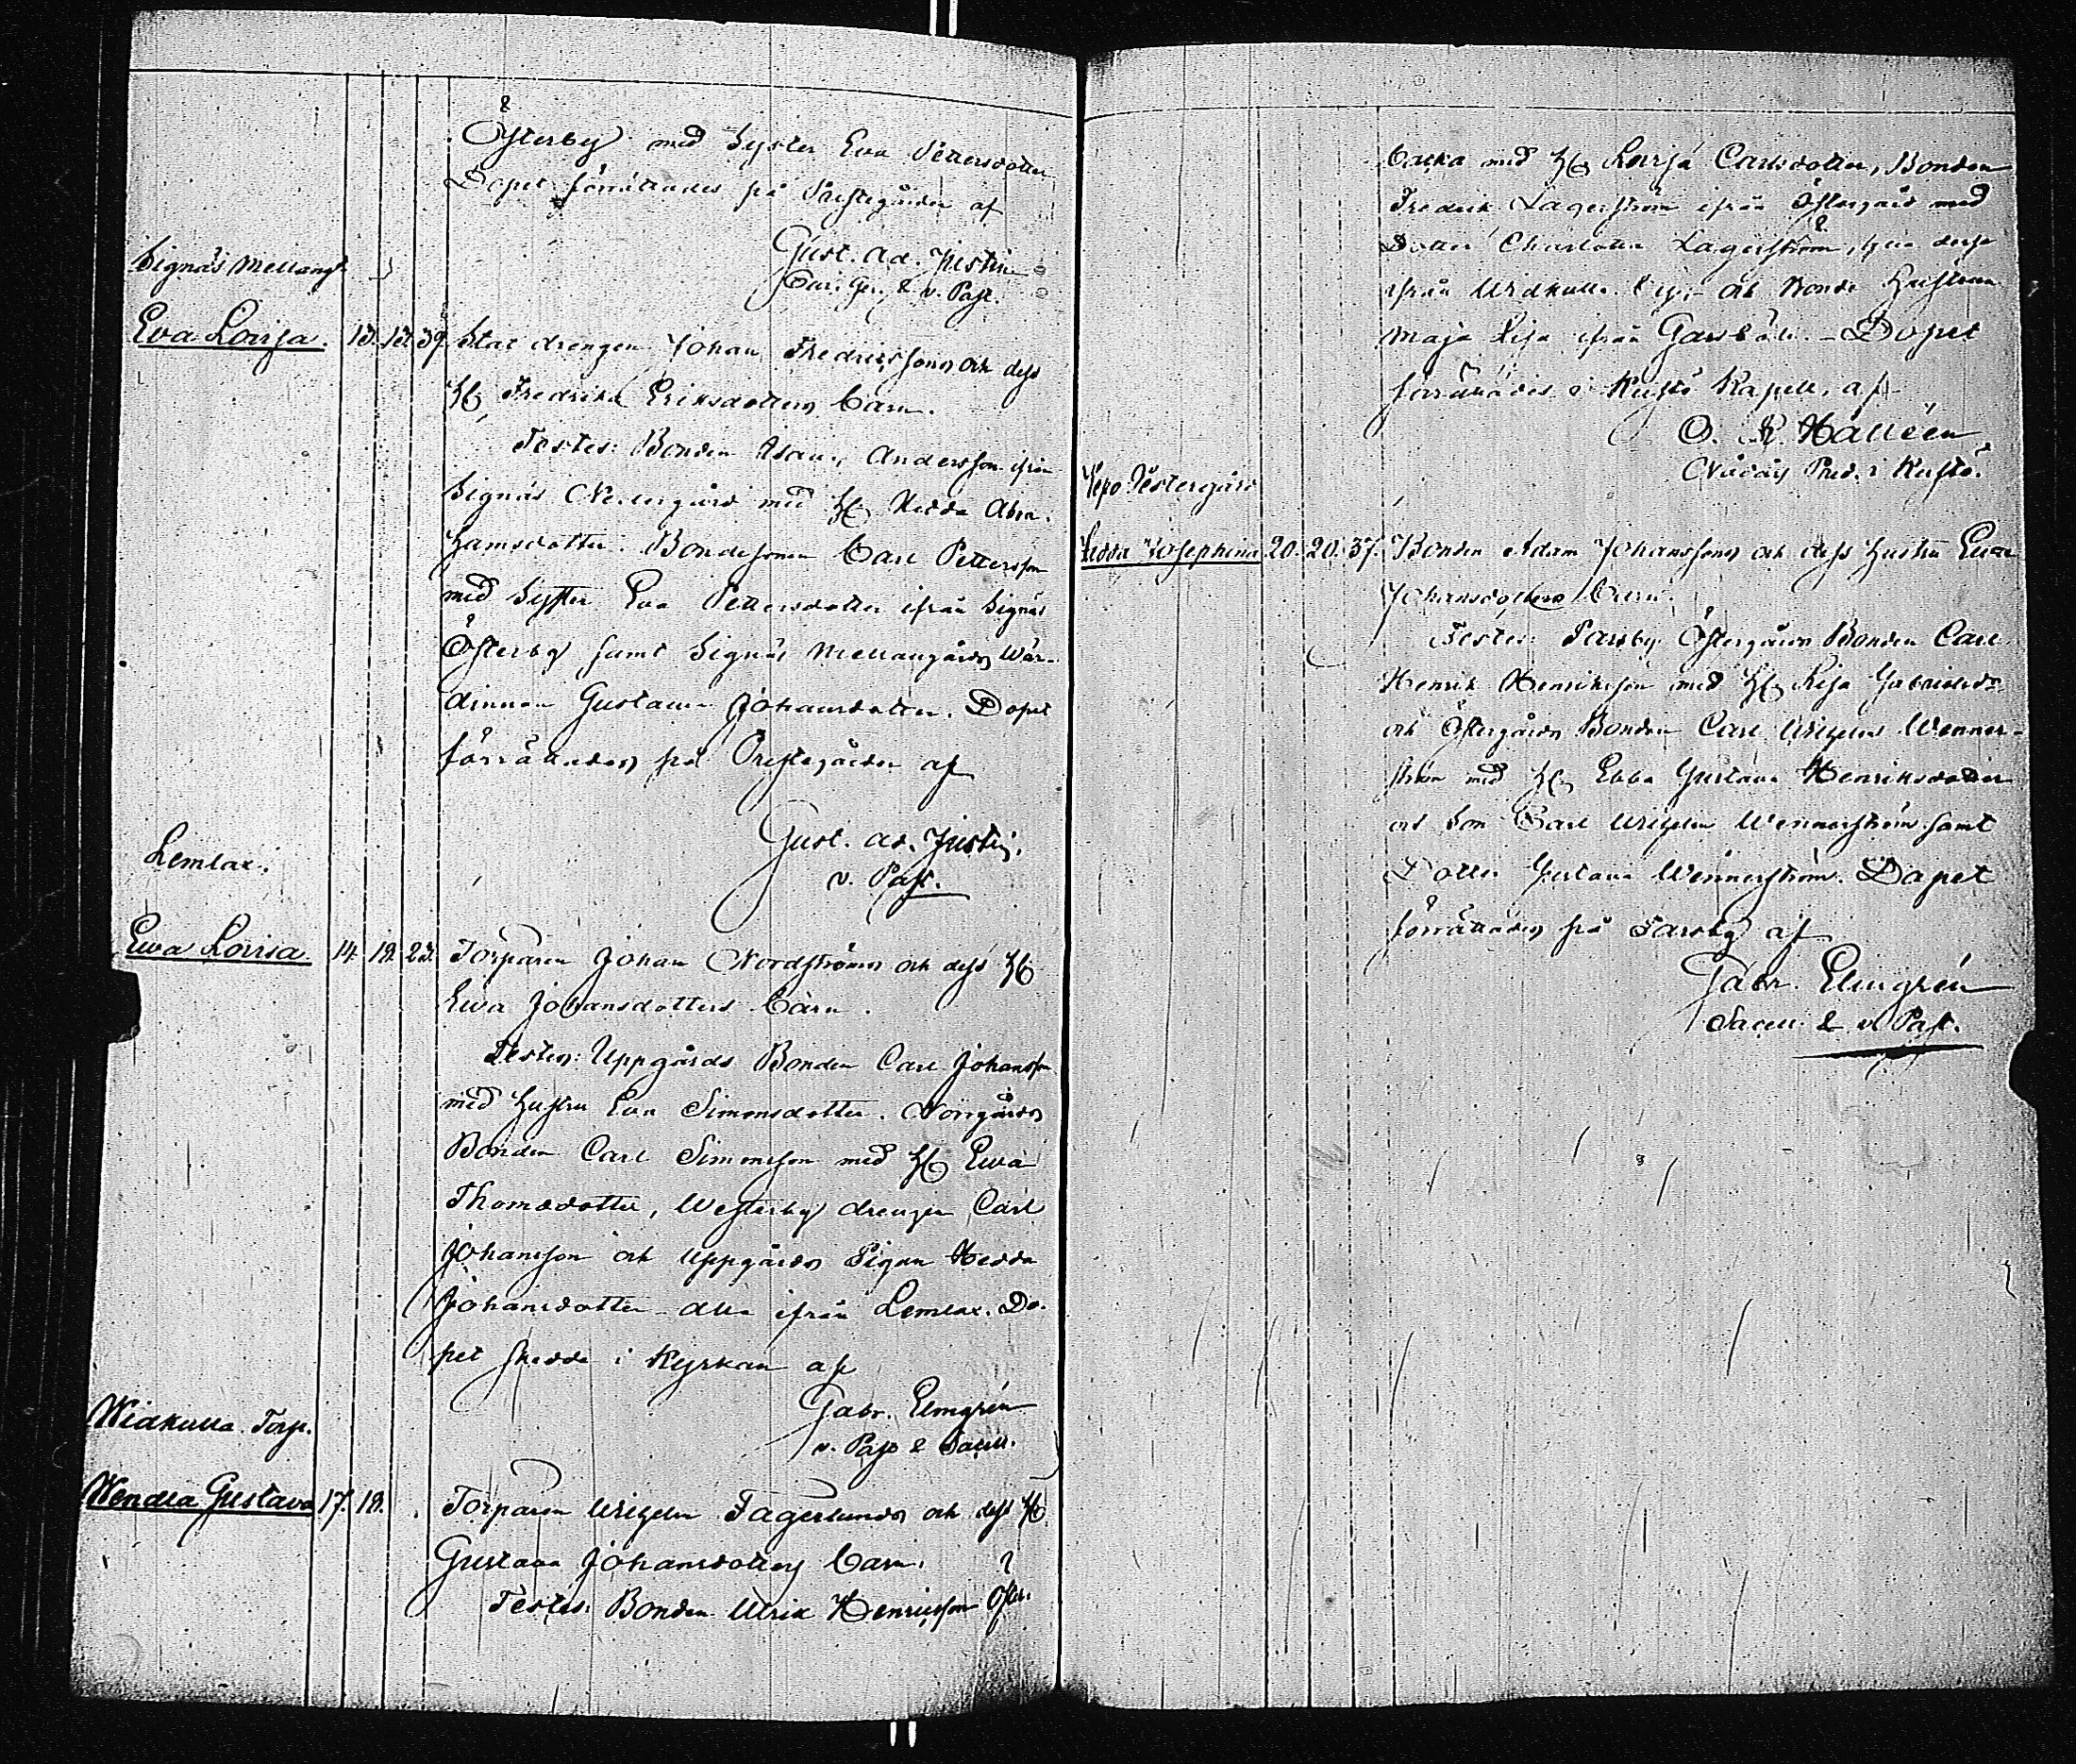 Österby med Syster Eva Pettersdotter
Dopet förrättades på Prestegården af
Gust. Ad. Justin
Cur. Ger. & v. Past.
Signäs Mellang.
Eva Lovisa. 13. 13. 39. Stat drengen Johan Fredrikssons och dess
H. Fredrika Eriksdotters barn.
Testes: Bonden Isaac Andersson ifrån
Signäs Nedergård med H. Hedda Abra-
hamsdotter. Bondesonen Carl Pettersson
med Syster Eva Pettersdotter ifrån Signäs
Österby samt Signäs Mellangårds Wär-
dinnan Gustava Johansdotter. Dopet
förrättades på Prestegården af
Gust. Ad. Justin.
v. Past.
Lemlax.
Ewa Lovisa. 14. 19. 23. Torparen Johan Nordströms och dess H.
Ewa Johansdotters barn.
Testes: Uppgårds Bonden Carl Johansson
med hustru Eva Simonsdotter. Norrgårds
Bonden Carl Simonsson med H. Ewa
Thomsdotter, Westerby drengen Carl
Johansson och Uppgårds Pigan Hedda
Johansdotter – alla ifrån Lemlax. Do-
pet skedde i Kyrkan af
Gabr. Elmgrén
v. Past & Sacell.
Widkulla Torp.
Wendla Gustava 17. 19. Torparen Wilhelm Fagerlunds och dess H.
Gustava Johansdotters barn.
Testes: Bonden Ulrik Henriksson
backa med H. Lovisa Carlsdotter, Bonden
Fredrik Lagerström ifrån Östergård med
Dotter Charlotta Lagerström, dessa
ifrån Widkulla by; och Bonde Hustrun
Maja Lisa ifrån Garsböle. – Dopet
förrättades i Kustö Kapell, af
O. R. Hälléen
Nådårs Pred. i Kustö.
Westergård
Hedda Josephina 20. 20. 37. Bonden Adam Johanssons och dess hustru Ewa
Johansdotters barn.
Testes: Parsby Östergårds Bonden Carl
Henrik Henriksson med H. Lisa Gabrielsdr
och Östergårds Bonden Carl Wilhelm Wenner-
ström med H. Ebba Gustava Henriksdotter
och Son Carl Wilhelm Wennerström samt
Dotter Gustava Wennerström. Dopet
förrättades på Parsby af
Gabr. Elmgrén
Sacell. & v. Past.